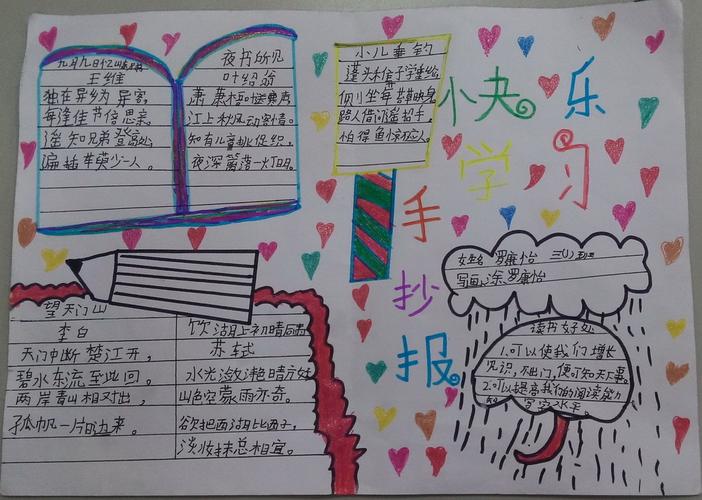 九月九日忆山东
王维
独在异乡为异客,
每逢佳节倍思亲
遥知兄弟登高处
遍插茱萸少一人。
夜书所见
叶绍翁
萧萧梧叶送寒声
江上秋风动客情。
知有儿童挑促织,
夜深篱落一灯明。
小儿垂钓
蓬头稚子学垂纶
侧坐莓苔草映身
路人借问遥招手,
怕得鱼惊不应人。
快乐
学习
手
抄
报
望天门山
李白
天门中断楚江开,
碧水东流至此回。
两岸青山相对出,
孤帆一片日边来。
饮湖上初晴后雨
苏轼
水光潋滟晴方好
山色空蒙雨亦奇。
欲把西湖比西子,
淡妆浓抹总相宜。
姓名 罗 怡 三(1)班
写画涂罗 怡
读书好处
1.可以使我们增长
见识,不出门,便可知天下事。
2.可以提高我们的阅读能力
和写字水平。